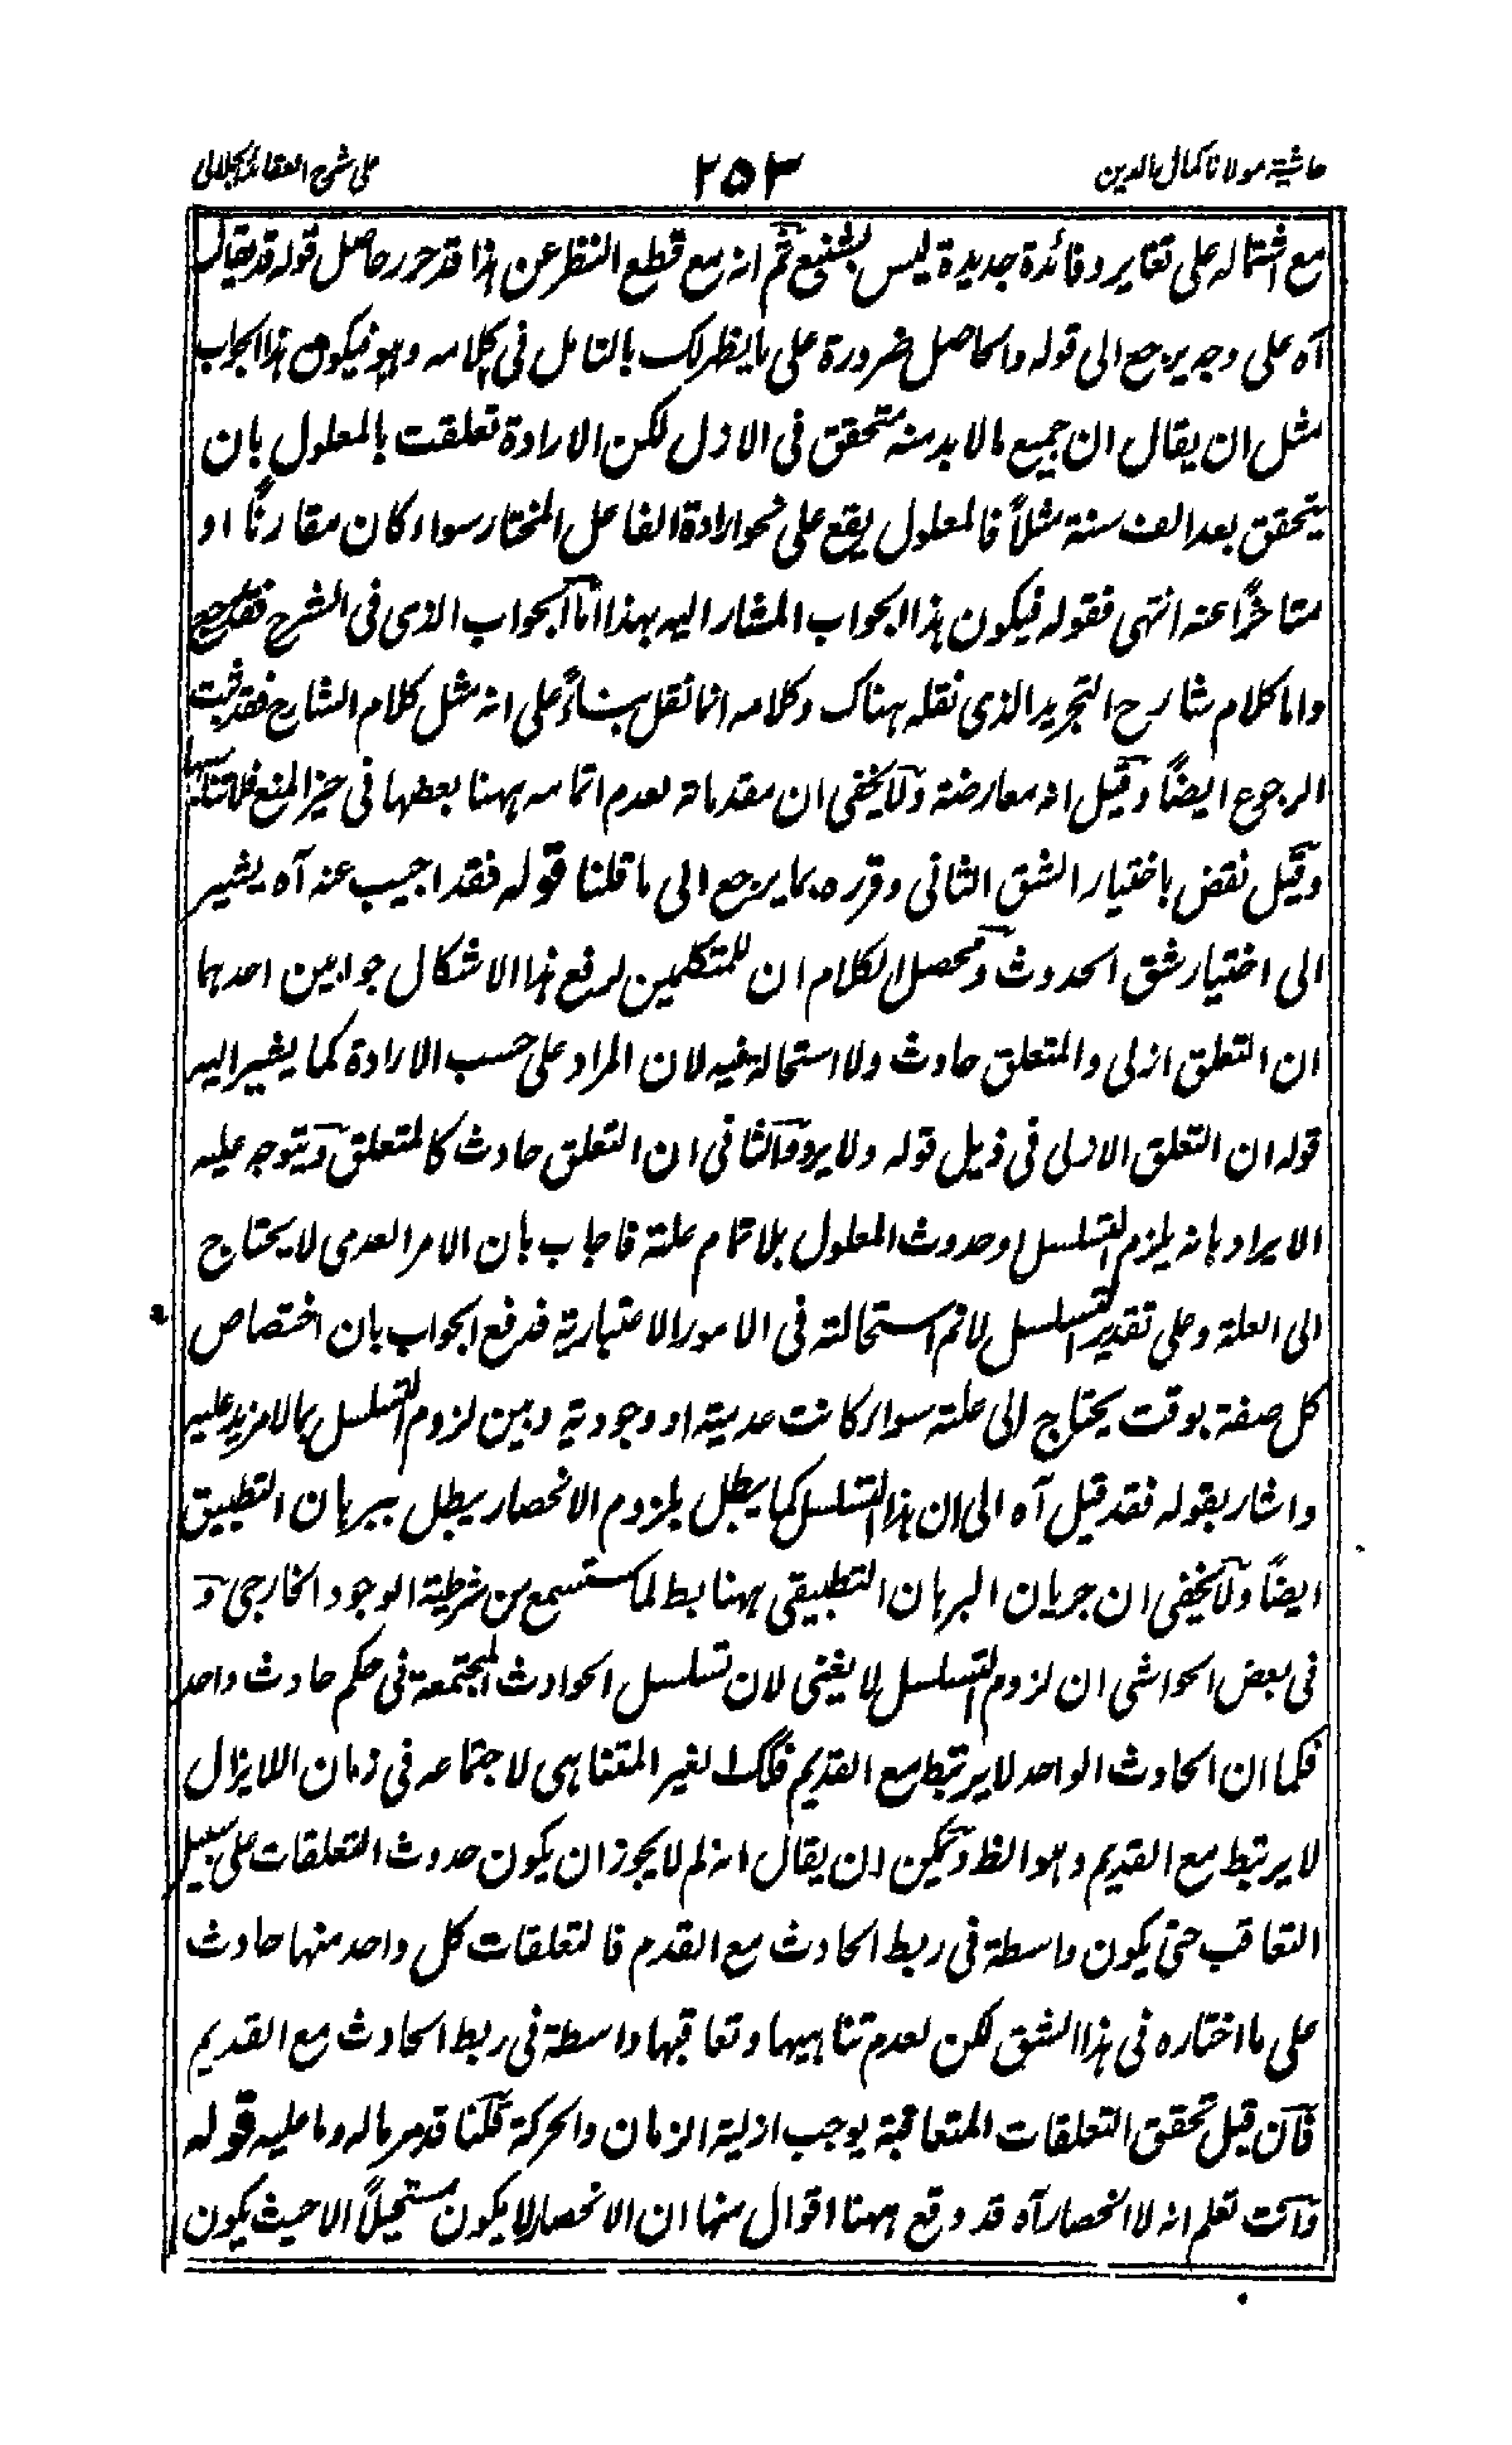 حاشية مولانا كمال الدين
٢٥٣
على شرح العقائد الجلالى
مع اشتماله على تقارير وفائدة جديدة ليس بشنيع ثم انه مع قطع النظر عن هذا قد حرر حاصل قوله قد يقال
آه على وجه يرجع الى قوله والحاصل ضرورة على ما يظهر لك بالتامل فى كلامه وهو فيكون هذا الجواب
مثل ان يقال ان جميع مالا بد منه متحقق فى الازل لكن الارادة تعلقت بالمعلول بان
يتحقق بعد الف سنة مثلاً فالمعلول يقع على نحو ارادة الفاعل المختار سواء كان مقارنًا او
متاخرًا عنه انتهى فقوله فيكون هذا الجواب المشار اليه بهذا اما الجواب الذى فى الشرح فقد رجع
واما كلام شارح التجريد الذى نقله هناك وكلامه انما نقل بناءً على انه مثل كلام الشارح فقد ثبت
الرجوع ايضًا وقيل انه معارضة ولا يخفى ان مقدماته لعدم اتمامه ههنا بعضها فى حيز المنع
وقيل نقض باختيار الشق الثانى وقرره بما يرجع الى ما قلنا قوله فقد اجيب عنه آه يشير
الى اختيار شق الحدوث ومحصل الكلام ان للمتكلمين لدفع هذا الاشكال جوابين احدهما
ان التعلق ازلى والمتعلق حادث ولا استحالة فيه لان المراد على حسب الارادة كما يشير اليه
قوله ان التعلق الازلى فى ذيل قوله ولا يرد والثانى ان التعلق حادث كالمتعلق ويتوجه عليه
الايراد بانه يلزم التسلسل او حدوث المعلول بلا تمام علته فاجاب بان الامر العدمى لا يحتاج
الى العلة وعلى تقدير التسلسل لانم استحالته فى الامور الاعتبارية فدفع الجواب بان اختصاص
كل صفة بوقت يحتاج الى علة سواء كانت عدمية او وجودية وبين لزوم التسلسل بما لا مزيد عليه
واشار بقوله فقد قيل آه الى ان هذا التسلسل كما يبطل بلزوم الانحصار يبطل ببرهان التطبيق
ايضًا ولا يخفى ان جريان البرهان التطبيقى ههنا بط لما ستسمع من شرطية الوجود الخارجى و
فى بعض الحواشى ان لزوم التسلسل لا يغنى لان تسلسل الحوادث المجتمعة فى حكم حادث واحد
فكما ان الحادث الواحد لا يرتبط مع القديم فكك الغير المتناهى لاجتماعه فى زمان اللايزال
لا يرتبط مع القديم وهو الظ ويمكن ان يقال انه لم لا يجوز ان يكون حدوث التعلقات على سبيل
التعاقب حتى يكون واسطة فى ربط الحادث مع القدم فالتعلقات كل واحد منها حادث
على ما اختاره فى هذا الشق لكن لعدم تناهيها وتعاقبها واسطة فى ربط الحادث مع القديم
فان قيل تحقق التعلقات المتعاقبة يوجب ازلية الزمان والحركة قلنا قد مر ماله وما عليه قوله
وانت تعلم انه لا انحصار آه قد وقع ههنا اقوال منها ان الانحصار لا يكون مستحيلاً الا حيث يكون